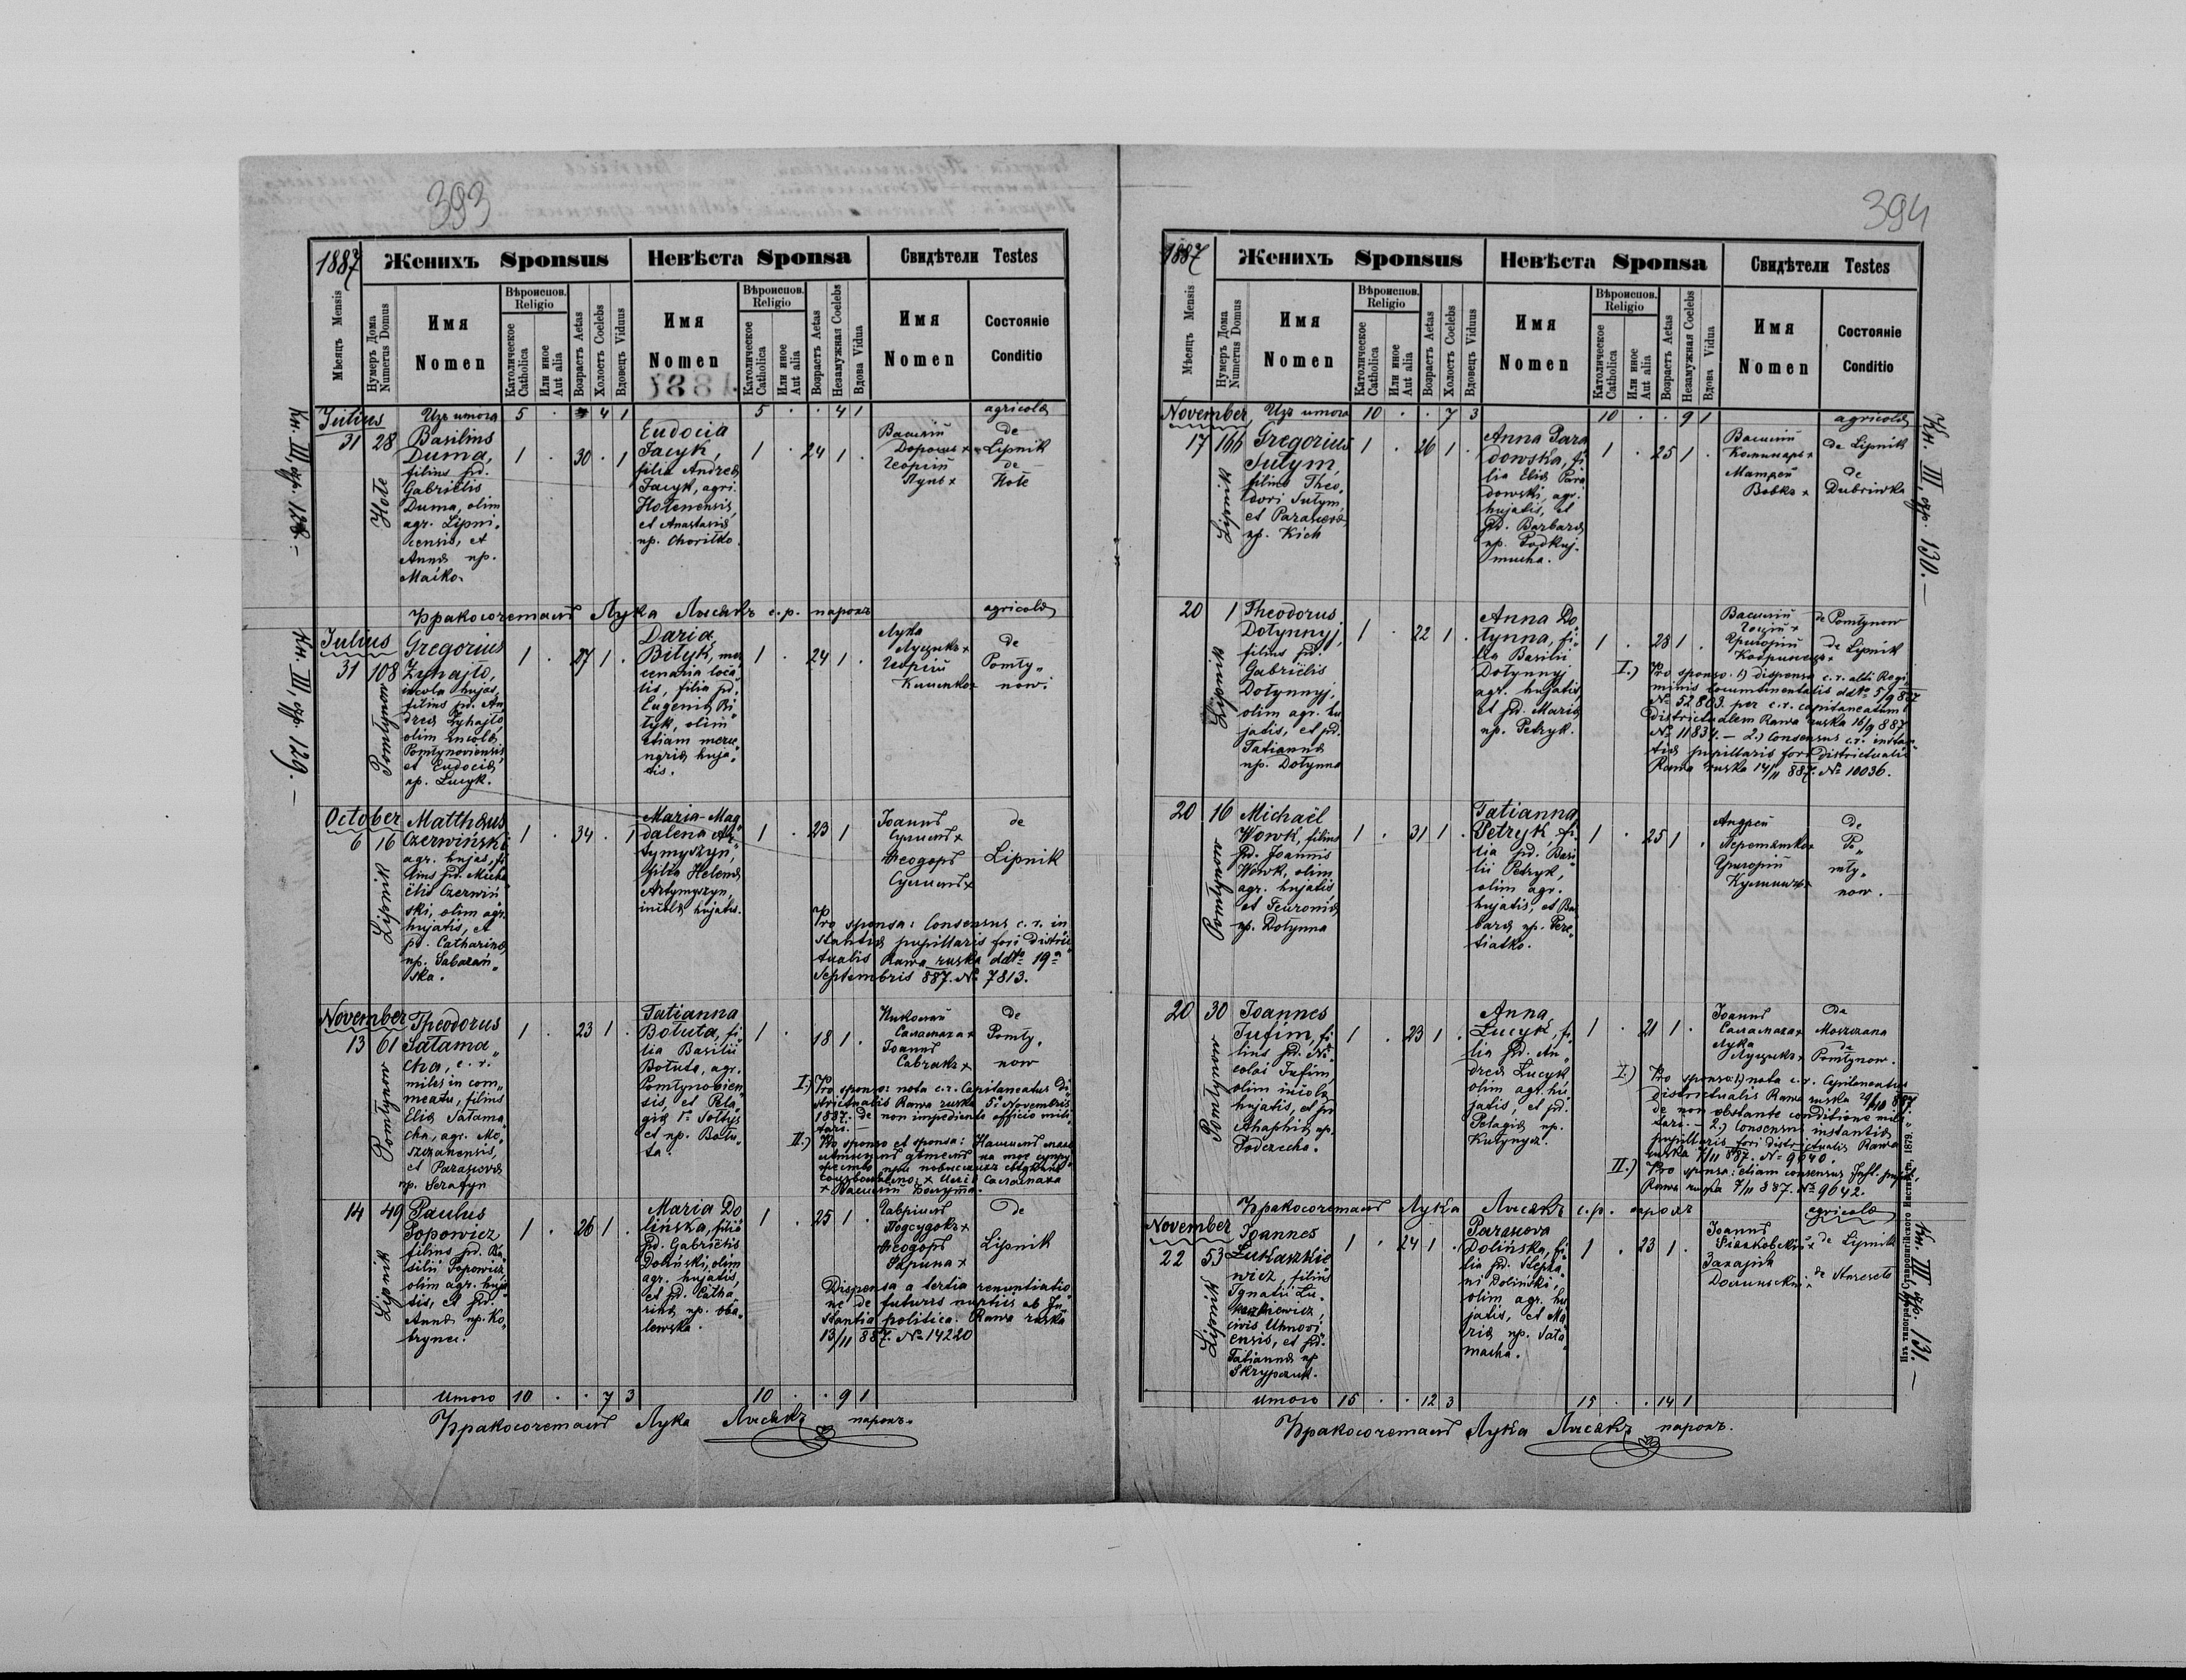 393
1887
Женихъ Sponsus
Невѣста Sponsa
Свидѣтели Testes
Мѣсяцъ Mensis
Нумеръ Дома
Numerus Domus
Имя
Nomen
Вѣроиспов.
Religio
Католическое
Catholica
Или иное
Aut alia
Возрастъ Aetas
Холостъ Coelebs
Вдовецъ Viduus
Имя
Nomen
1887
Вѣроиспов.
Religio
Католическое
Catholica
Или иное
Aut alia
Возрастъ Aetas
Незамужная Coelebs
Вдова Vidua
Имя
Nomen
Состояніе
Conditio
Кн. III, стр. 128. —
Julius
5 . 4 1
5 . . 4 1
31 28
Hołe
Basilius
Duma,
filius pd.
Gabriëlis
Duma, olim
agr. Lipni„
censis, et
Annæ np.
Maćko.
1 . 30 . 1
Eudocia
Jacyk,
filia Andreæ
Jacyk, agri.
Hołenensis,
et Anastasiæ
np. Choriłko.
1 . 24 1 .
Василій
Георгій
agricolæ
de
Lipnik
de
Hołe
Бракосочеталъ Лука Лисякъ с. р. парохъ
Кн. III, стр. 129. —
Julius
31 108
Pomłynow
Gregorius
Zyhajło,
incola hujas,
filius pd. An
dreæ Zyhajło
olim incolæ
Pomłynoviensis
et Eudociæ
np. Lucyk.
1 . 27 1 .
Daria
Biłyk, mer
cenaria loca
lis, filia pd.
Eugeniæ Bi
łyk, olim
etiam merce„
nariæ huja„
tis.
1 . 24 1 .
Лука
Луцикъ +
Георгій
agricolæ
de
Pomły„
now.
October
6 16
Lipnik
Matthæus
Czerwiński
agr. hujas, fi
lius pd. Micha
ëlis Czerwiń
ski, olim agr.
hujatis, et
pd. Catharinæ
np. Sabarań„
ska.
1 . 34 . 1
Maria-Mag
dalena Ar„
tymyszyn,
filia Helenæ
Artymyszyn,
incolæ hujatis.
1 . 23 1
Іоаннъ
Ѳеодоръ
de
Lipnik
Pro sponsa: Consensus c. r. in
stantiæ pupillaris fori distric„
tualis Rawa ruska ddto 19a
Septembris 887. No 7813.
November
13 61
Pomłynow
Theodorus
Sałama„
cha, c. r.
miles in com„
meatu, filius
Eliæ Sałama„
cha, agr. Mo„
szczanensis,
et Parasceva
np. Serafyn
1 . 23 1 .
Tatianna
Botuta, fi„
lia Basilii
Botuta, agr.
Pomłynovien„
sis, et Pela„
giæ
et np. Botu„
ta.
1 . 18 1 .
Николай
Саламаха +
Іоаннъ
Савчакъ +
de
Pomły„
now
I.) Pro sponso: nota c. r. Capitaneatus Di„
strictualis Rawa ruska 5a Novembris
1887. de non impediente officio mili„
tari. —
II.) Pro sponso et sponsa:
14 49
Lipnik
Paulus
Popowicz
filius pd. Ba„
silii Popowicz
olim agr. huja„
tis, et pd.
Annæ np. Ko„
brynec.
1 . 26 1 .
Maria Do
lińska, filia
pd. Gabriëlis
Doliński, olim
agr. hujatis,
et pd. Catha
rinæ np. Oba„
lewska.
1 . 25 1 .
Гавріилъ
Подсудокъ +
Ѳеодоръ
de
Lipnik
Dispensa a tertia renuntiatio„
ne de futuris nuptiis ab In„
stantia politica. Rawa ruska
13/11 887. No 14220
Итого 10 . . 7 3
10 . . 9 1
Бракосочеталъ Лука Лисякъ парохъ.
394
1887
Женихъ Sponsus
Невѣста Sponsa
Свидѣтели Testes
Мѣсяцъ Mensis
Нумеръ Дома
Numerus Domus
Имя
Nomen
Вѣроиспов.
Religio
Католическое
Catholica
Или иное
Aut alia
Возрастъ Aetas
Холостъ Coelebs
Вдовецъ Viduus
Имя
Nomen
Вѣроиспов.
Religio
Католическое
Catholica
Или иное
Aut alia
Возрастъ Aetas
Незамужная Coelebs
Вдова Vidua
Имя
Nomen
Состояніе
Conditio
Кн. III, стр. 130. —
November
10 . . 7 3
10 . . 9 1
17 166
Lipnik
Gregorius
Sułym,
filius Theo„
dori Sułym,
et Parascevæ
np. Kich
1 . 26 1 .
Anna Para
dowska, fi
lia Eliæ Para
dowski, agr.
hujatis, et
pd. Barbaræ
np. Podkuj„
mucha.
1 . 25 1 .
Василій
Матѳей
Бобко +
agricolæ
de Lipnik
de
Dubriwka
20 1
Lipnik
Theodorus
Dołynnyj,
filius pd.
Gabriëlis
Dołynnyj,
olim agr. hu
jatis, et pd.
Tatiannæ
np. Dołynna
1 . 22 1 .
Anna Do
łynna, fi„
lia Basilii
Dołynnyj
agr. hujatis
et pd. Mariæ
np. Petryk.
1 . 28 1 .
Василій
Григорій
de Pomłynow
de Lipnik
I.) Pro sponso. 1) dispensa c. r. alti Regi„
minis locumtenentialis ddto 5/9 887
No 52803. per c. r. capitaneatum
districtualem Rawa ruska 16/9 887
No 11834. — 2.) Consensus c. r. instan„
tiæ pupillaris fori Districtualis
Rawa ruska 14/11 887. No 10036.
20 16
Pomłynow
Michaël
Wowk, filius
pd. Joannis
Wowk, olim
agr. hujatis
et Feuroniæ
np. Dołynna
1 . 31 1 .
Tatianna
Petryk, fi„
lia pd. Basi„
lii Petryk,
olim agr.
hujatis, et Bar
baræ np. Pere„
tiatko.
1 . 25 1 .
Андрей
Григорій
de
Po„
mły„
now.
20 30
Pomłynow
Joannes
Jufim, fi„
lius pd. Ni„
colai Jufim,
olim incolæ
hujatis, et pd
Anaphiæ np.
Podczecha.
1 . 23 1 .
Anna
Lucyk, fi„
lia pd. An„
dreæ Lucyk
olim agr. hu
jatis, et pd.
Pelagiæ np.
Kutynycz.
1 . 21 1 .
Іоаннъ
Саламаха +
Лука
Луцикъ +
de
Moszczana
de
Pomłynow.
I.) Pro sponso: 1) nota c. r. Capitaneatus
Districtualis Rawa ruska 29/10 887
de non obstante conditione mili„
tari. — 2.) Consensus instantiæ
pupillaris fori districtualis Rawa
ruska 7/11 887. No 9640.
II.) Pro sponsa: etiam consensus
Rawa ruska 7/11 887. No 9642.
Бракосочеталъ Лука Лисякъ с. р. парохъ
Кн. III стр. 131. —
November
22 53
Lipnik
Joannes
Łukaszkie
wicz, filius
Ignatii Łu„
kaszkiewicz,
civis Uhnovi„
ensis, et pd.
Tatiannæ np
Skrypczuk.
1 . 24 1 .
Parascva
Dolińska, fi
lia pd. Stepha„
ni Doliński,
olim agr. hu
jatis, et Ma
riæ np. Sała
macha.
1 . 23 1 .
Іоаннъ
Захарія
agricolæ
de Lipnik
Изъ типографіи Ставропигійского Института, 1879.
Итого 15 . . 12 3
15 . . 14 1
Бракосочеталъ Лука Лисякъ парохъ.